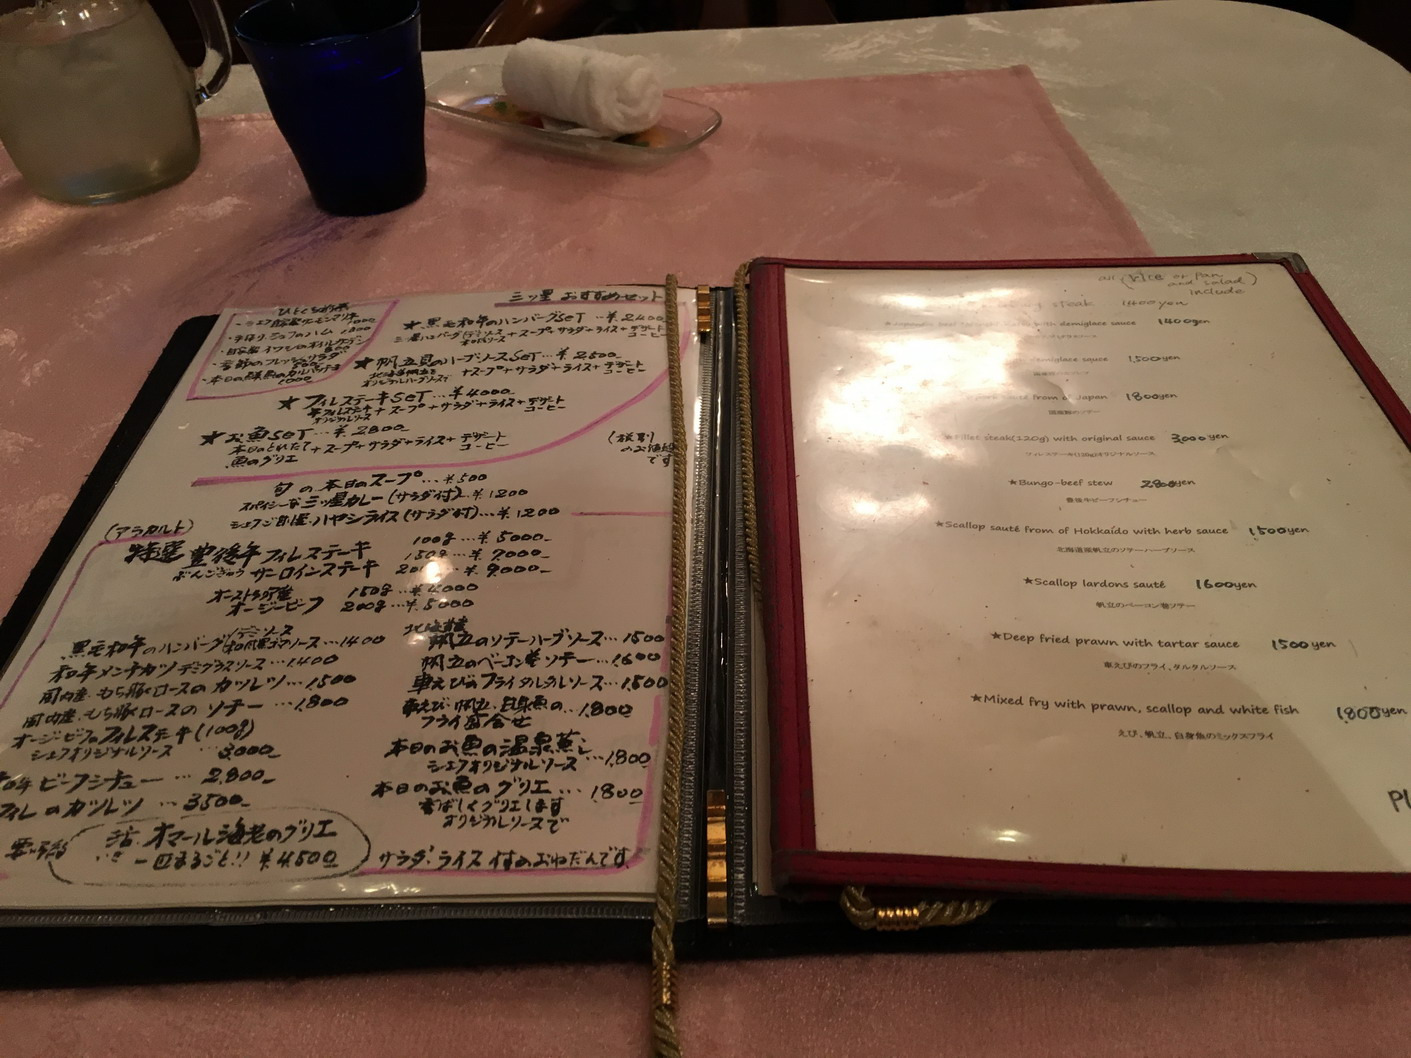 三ッ星 おすすめセット
・手作りジャンボのハム 1,800
・季節のフレッシュサラダ
・本日の鮮魚のカルパッチョ
1000
★黒毛和牛のハンバーグSET …¥2400
+スープ+サラダ+ライス+デザート
コーヒー
★帆立貝のハーブソースSET…¥2500
オリジナルハーブソースで +スープ+サラダ+ライス+デザート
コーヒー
★フィレステーキSET…¥4000
牛フィレステーキ
オリジナルソース +スープ+サラダ+ライス+デザート
コーヒー
★お魚SET…¥2800
本日のとれたて
魚のグリエ +スープ+サラダ+ライス+デザート
コーヒー
(税別
のお値段
です)
旬の本日のスープ…¥500
スパイシーな三ッ星カレー(サラダ付)…¥1200
シェフご自慢ハヤシライス(サラダ付)…¥1200
(アラカルト)
特選 豊後牛フィレステーキ 100g…¥5000
ぶんごぎゅう サーロインステーキ 150g…¥7000
¥9000
オーストラリア産 150g…¥4000
オージービーフ 200g…¥5000
黒毛和牛のハンバーグ 和風黒ゴマソース…1400
和牛メンチカツ デミグラスソース…1400
国内産もち豚ロースのカツレツ…1,500
国内産もち豚ロースのソテー…1,800
オージービーフのフィレステーキ(100g)
シェフオリジナルソース 3,000
和牛ビーフシチュー…2,800
フィレのカツレツ…3500
活オマール海老のグリエ
一匹まるごと!! ¥4,500
北海道産
帆立のソテーハーブソース…1500
帆立のベーコン巻ソテー…1,600
車えびのフライタルタルソース…1,500
車えび、帆立、白身魚の
フライ盛合せ …1,800
本日のお魚の温泉蒸し
シェフオリジナルソース …1,800
本日のお魚のグリエ…1800
香ばしくグリエします
オリジナルソースで
サラダ、ライス付のおねだんです。
all (Rice or Pan
and salad)
include
steak 1400yen
with demiglace sauce 1400yen
demiglace sauce 1,500yen
pork sauté from of Japan 1800yen
国産豚のソテー
★Fillet steak(120g) with original sauce 3,000yen
フィレステーキ(120g)オリジナルソース
★Bungo-beef stew 2800yen
豊後牛ビーフシチュー
★Scallop sauté from of Hokkaido with herb sauce 1500yen
北海道産帆立のソテーハーブソース
★Scallop lardons sauté 1600yen
帆立のベーコン巻ソテー
★Deep fried prawn with tartar sauce 1500yen
車えびのフライ、タルタルソース
★Mixed fry with prawn, scallop and white fish 1800yen
えび、帆立、白身魚のミックスフライ